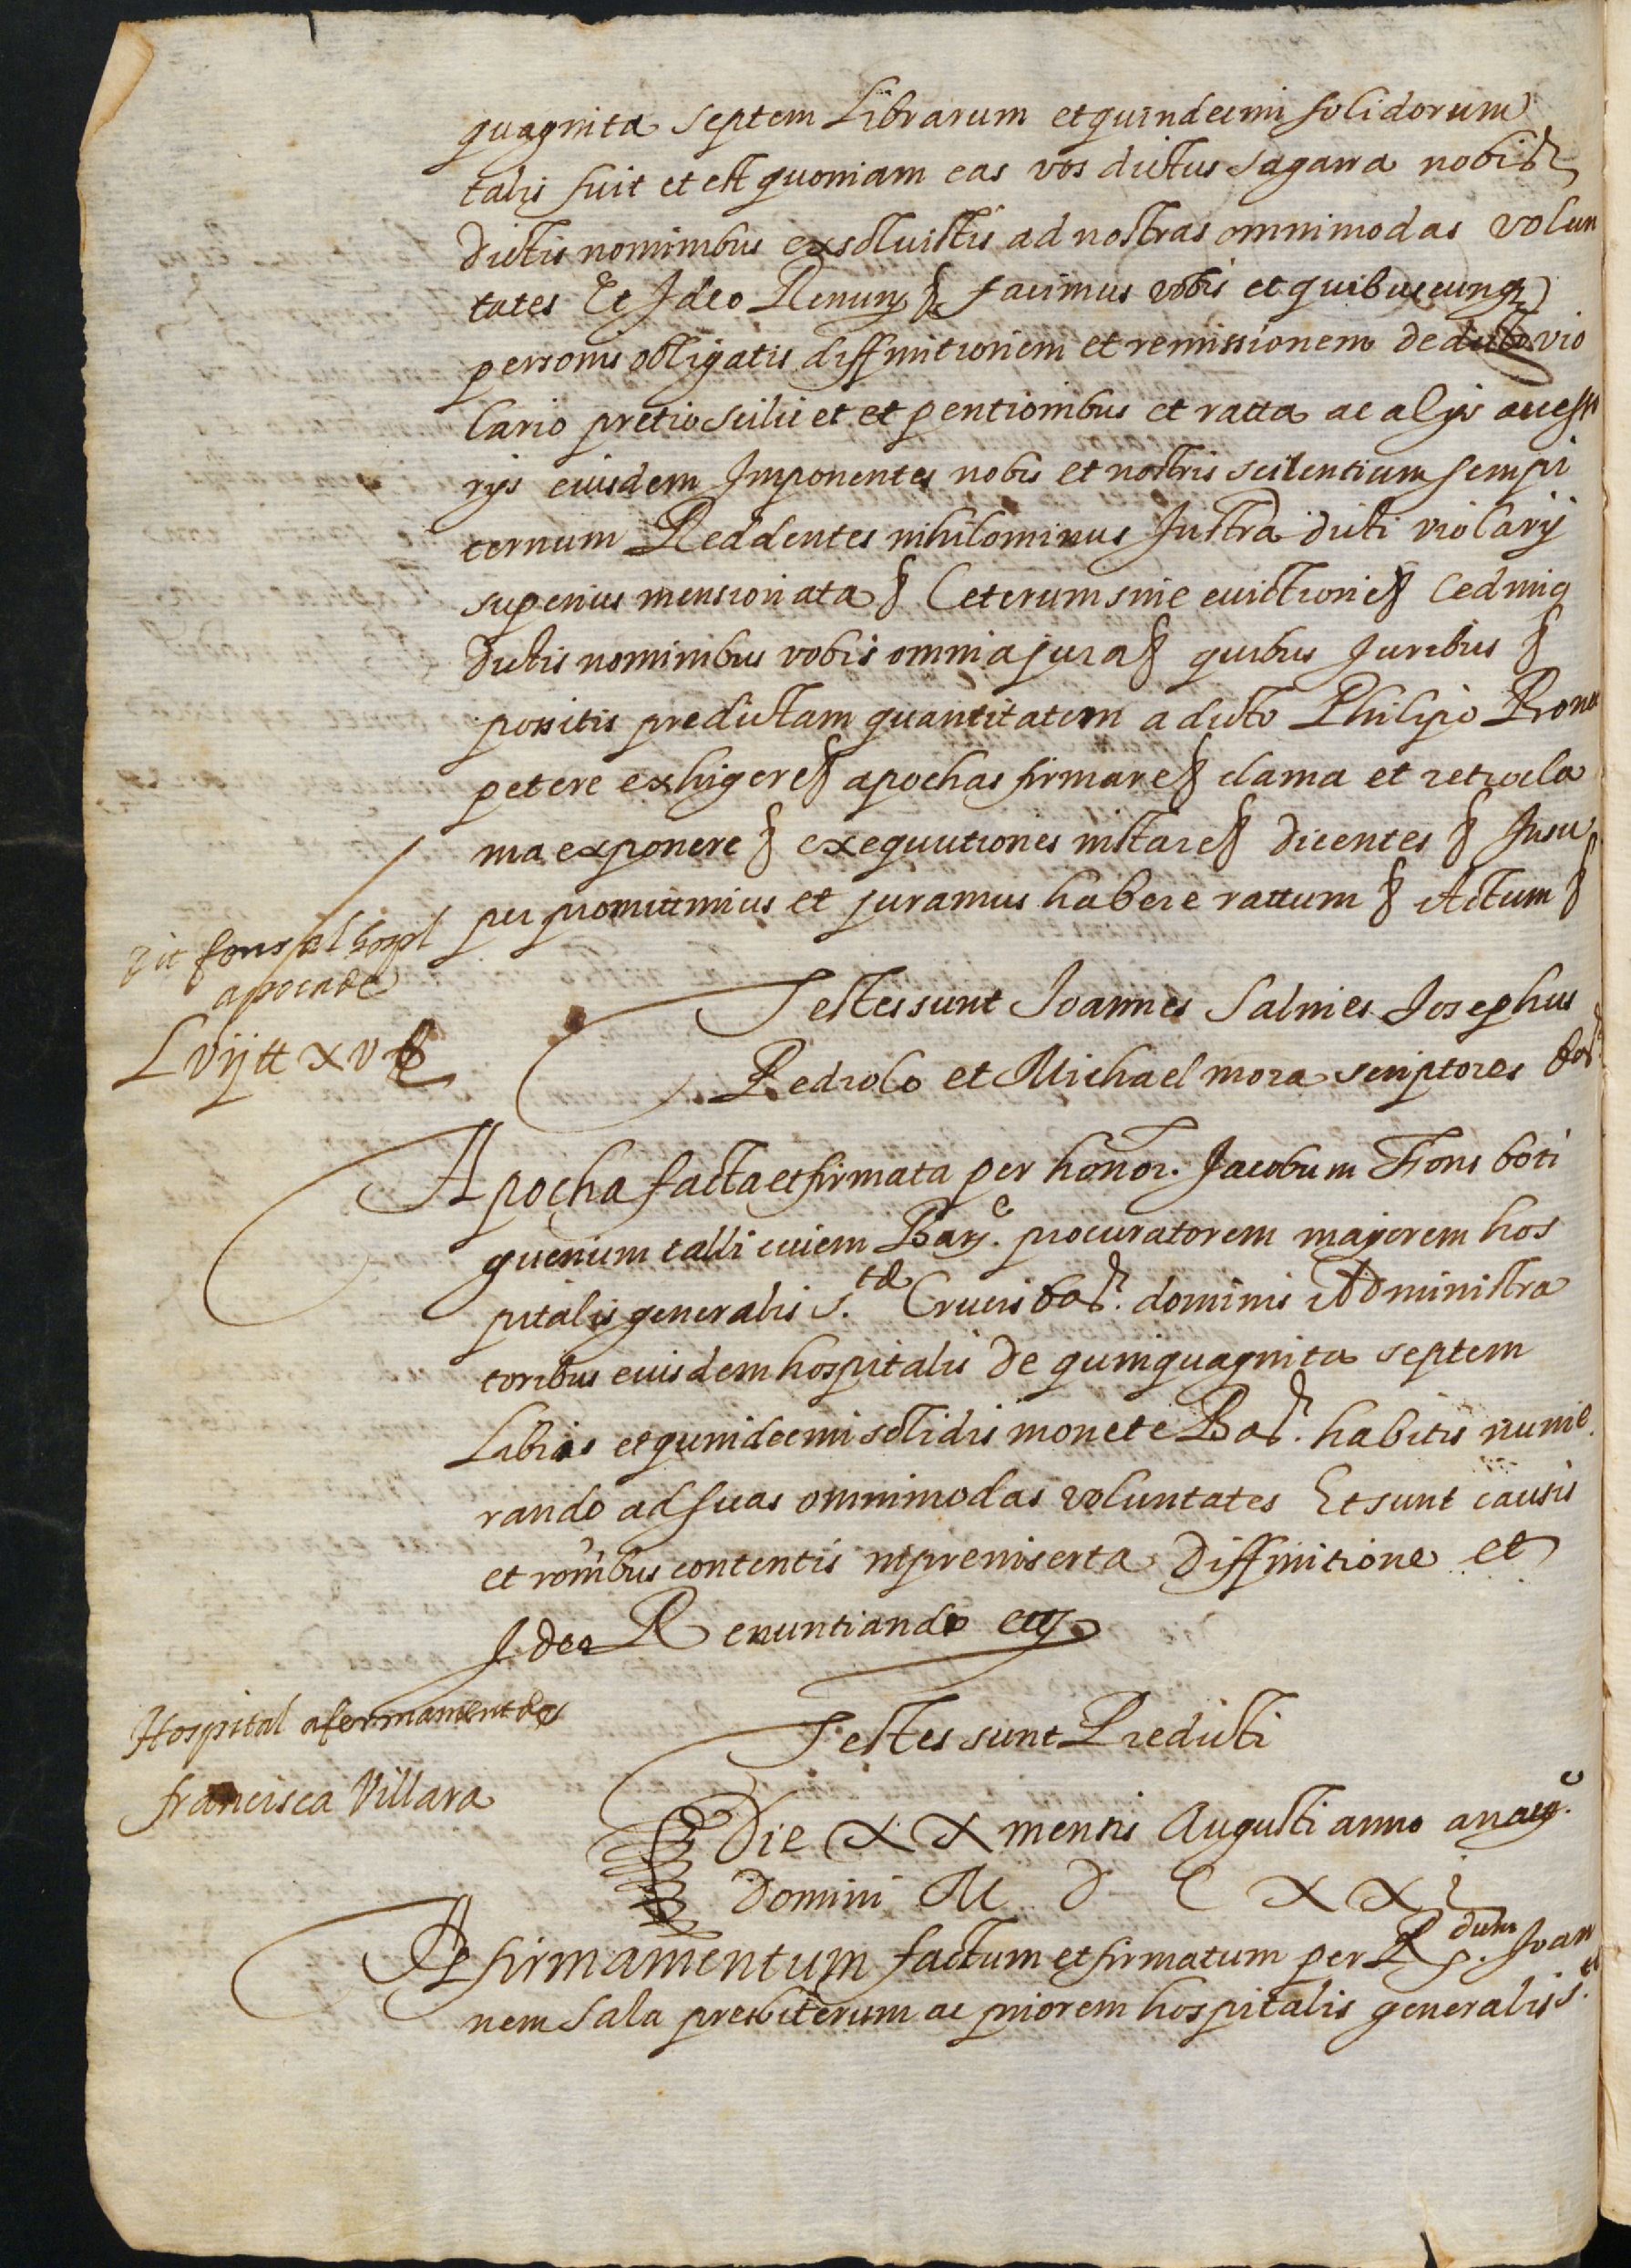 quagnita septem Librarum et quindecim solidorum
talis fuit et est quoniam eas vos dictus Sagarra nobis
dictis nominibus exsoluistis ad nostras omnimodas volun
tates Et Ideo Renun§ & facimus vobis et quibuscunq
personis obligatis diffinitionem et remissionem de dicto vio
lario pretio scilicet et pentionibus et ratta ac alijs accesso
rijs eiusdem Imponentes nobis et nostris scilentium sempi
ternum Reddentes nihilominus Instra dicti violarij
superius mensionata & Ceterum sine euictione & Cedimq
dictis nominibus vobis omnia jura & quibus Juribus &
possitis predictam quantitatem a dicto Philipo Roma
petere exhigere & apochas firmare & clama et retrocla
ma exponere & exequutiones instare & dicentes & Insu
per promittimus et juramus habere rattum & Actum &
Testes sunt Joannes Salmes Josephus
Pedrolo et Michael mora scriptores Bar.
dit fons al hospl
apocade
Lvij tt xv ß
Apocha facta et firmata per honor. Jacobum Fons boti
guerium talli ciuem Barc. procuratorem majorem hos
pitalis generalis S.te Crucis Bar. dominis Administra
toribus eiusdem hospitalis de quinquagnita septem
Libris et quindecim solidis monete Bar. habitis nume
rando ad suas omnimodas voluntates Et sunt causis
et ronibus contentis in preinserta Diffinitione et
Ideo Renuntiando etc
Testes sunt Predicti
Hospital afermament de
francisca Villara
Die XX mensis Augusti anno a nati.
Domini M D C X X i
Afirmamentum factum et firmatum per R.dum Joan
nem Sala presbiterum ac priorem hospitalis generalis S.te